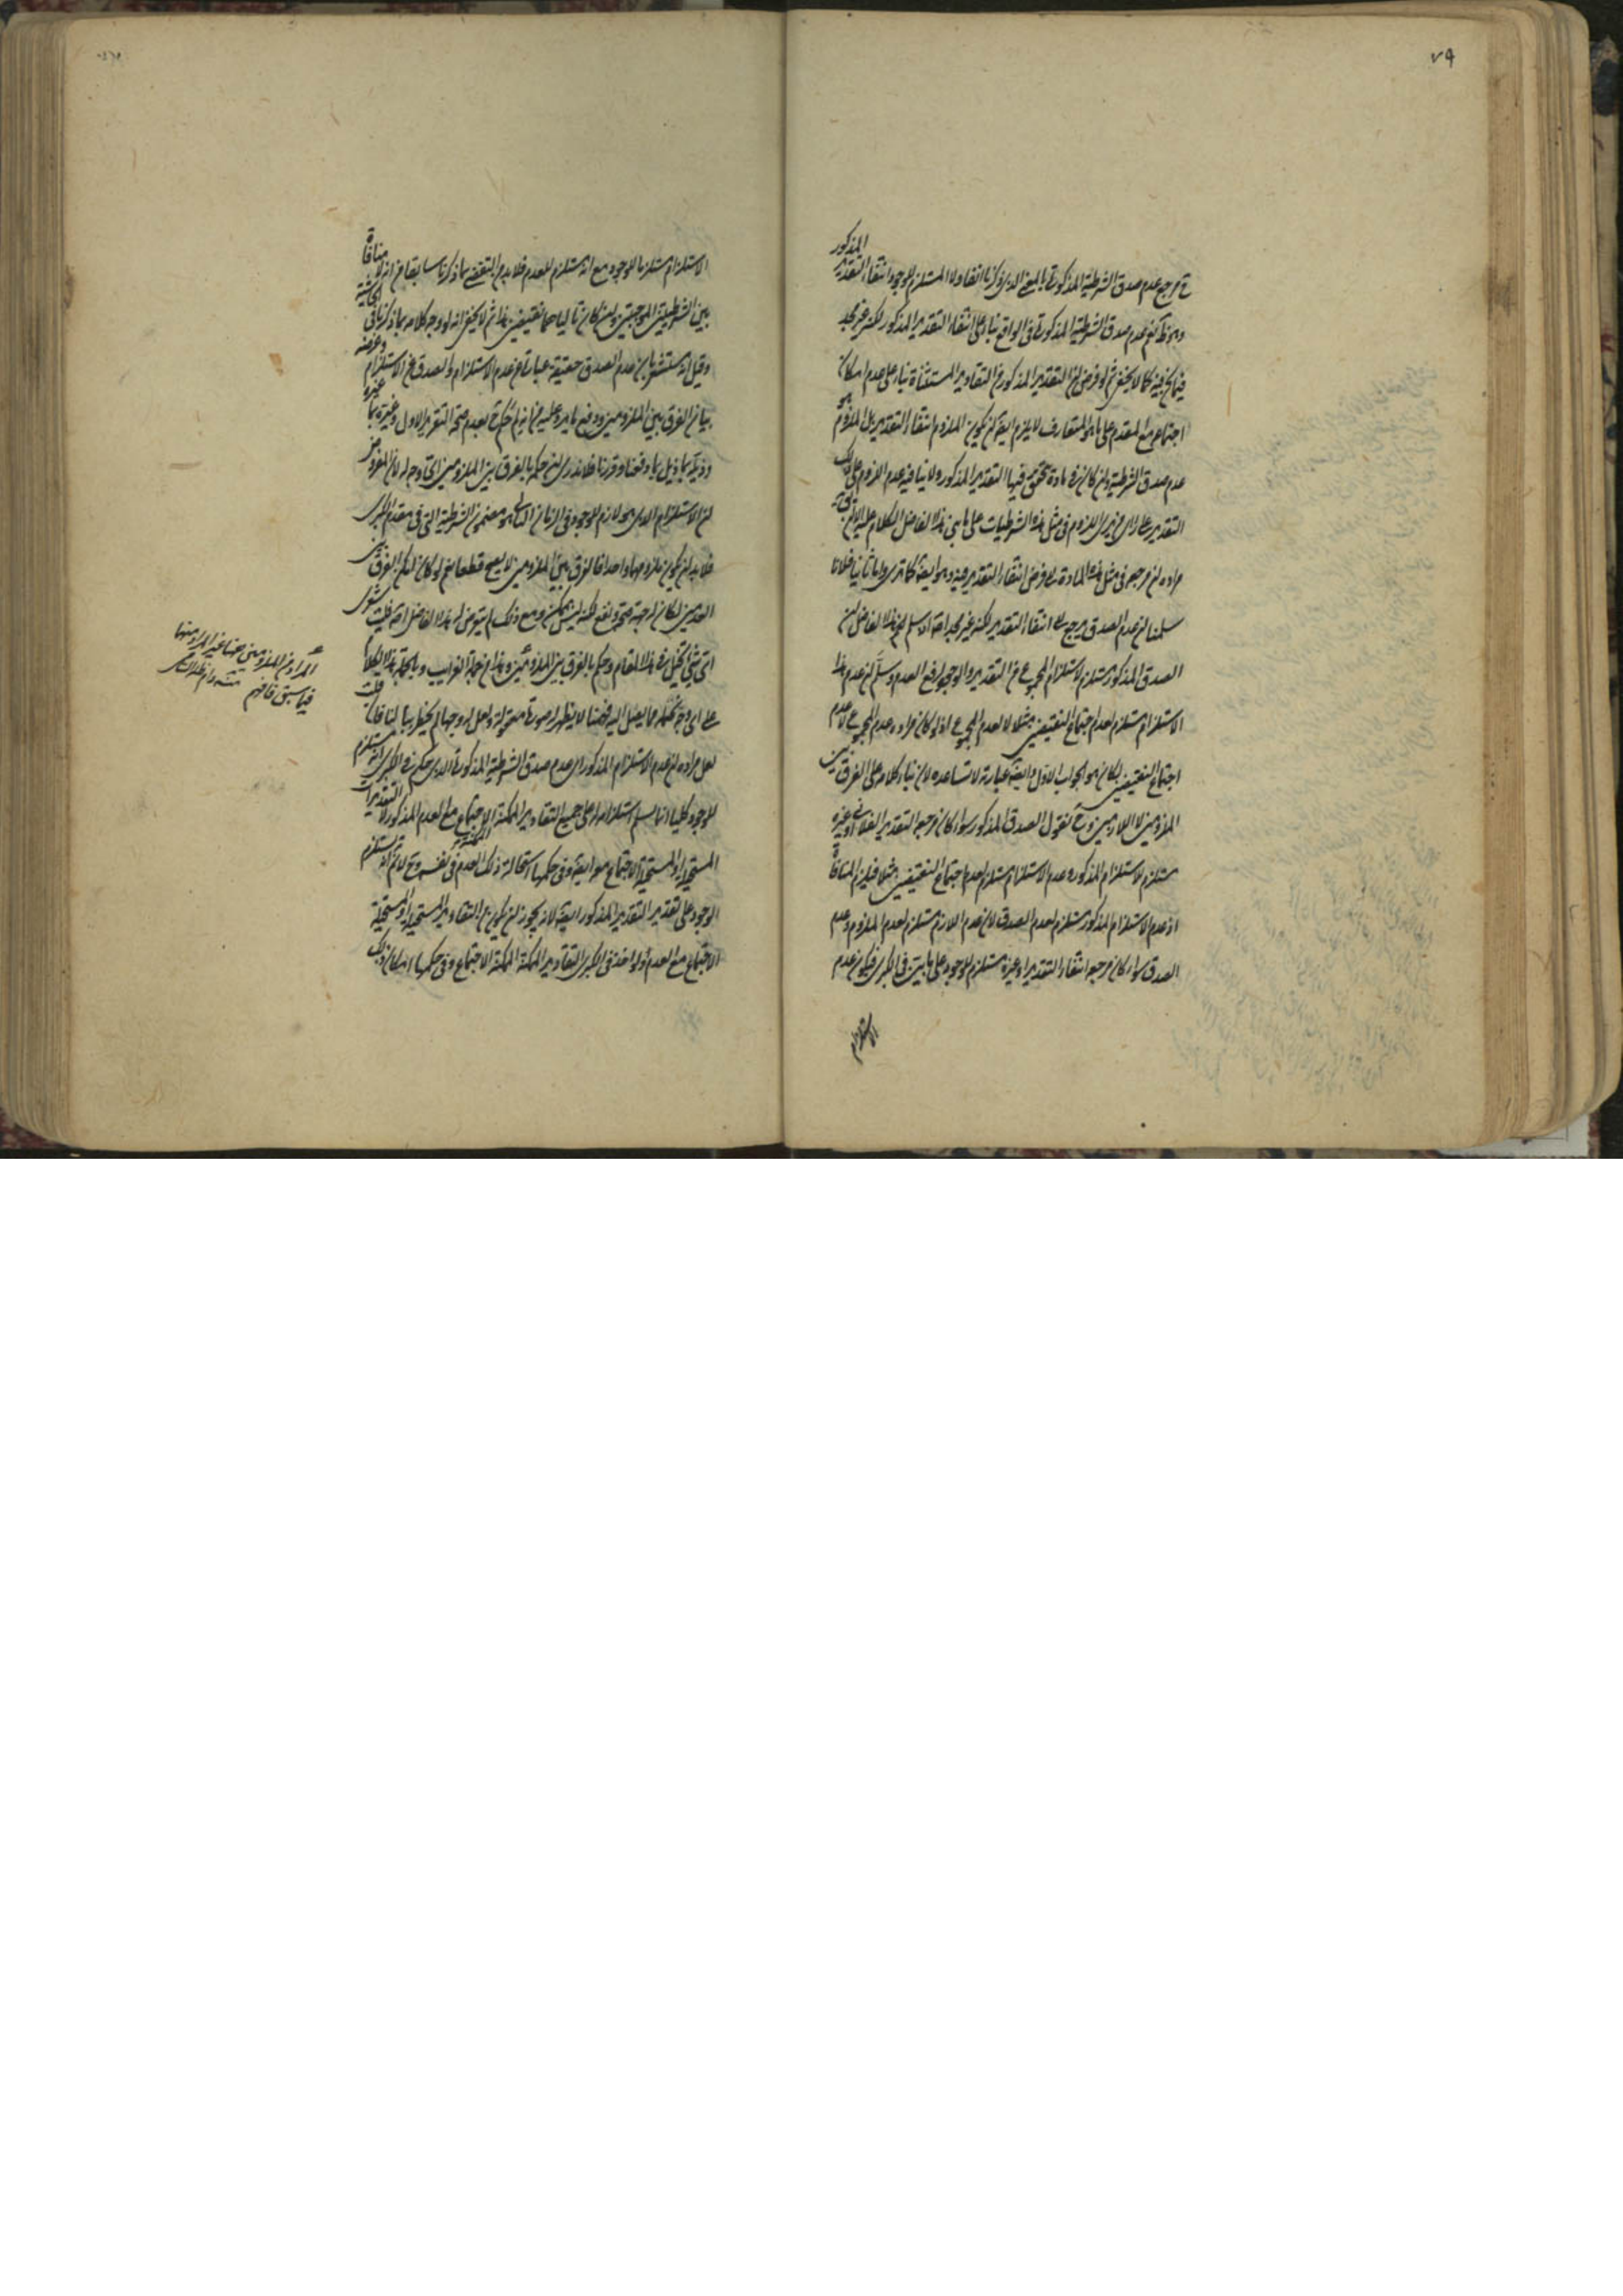 ٧٩
المذكور
ح مرجع عدم صدق الشرطية المذكورة بالمعنى الذي ذكرنا المستلزم للوجود انتفاء التقدير
عدم صدق الشرطية المذكورة في الواقع بناء على انتفاء التقدير المذكور لكنه غير مجد
فيما نحن فيه كما لا يخفى ثم لو فرض ان التقدير المذكور من التقادير المستثناة بناء على عدم امكان
اجتماع مع المقدم على ما هو المتعارف لا يلزم ايضا ان يكون الملزوم انتفاء التقدير بل الملزوم هو
عدم صدق الشرطية وان كان في مادة تحقق فيها التقدير المذكور ولا ينافيه عدم اللزوم على ذلك
التقدير في مثل هذه الشرطيات على ما بنى هذا الفاضل الكلام عليه الا ان يق
مراده ان مرجعه في مثل هذه المادة الى فرض انتفاء التقدير فيه وهو ايضا كما ترى واما ثانيا فلانا
سلمنا ان عدم الصدق يرجع الى انتفاء التقدير لكنه غير مجد اصلا اذ سلم هذا الفاضل ان
الصدق المذكور مستلزم لاستلزام المجموع من التقدير والوجود لرفع العدم وسلم ان عدم هذا
الاستلزام مستلزم لعدم اجتماع النقيضين مثلا لا لعدم المجموع اذ لو كان مراده عدم المجموع لا عدم
اجتماع النقيضين لكان هو الجواب الاول وايضا عبارته لا تساعده لان بناء كلامه على الفرق بين
الملزومين لا اللازمين وح نقول الصدق المذكور سواء كان مرجعه التقدير الفلاني او غيره
مستلزم لاستلزام المذكور وعدم الاستلزام مستلزم لعدم اجتماع النقيضين مثلا فيلزم المنافاة
اذ عدم الاستلزام المذكور مستلزم لعدم الصدق لان عدم اللازم مستلزم لعدم الملزوم وعدم
الصدق سواء كان مرجعه انتفاء التقدير او غيره مستلزم للوجود على ما بين في الكبرى فيكون عدم
الاستلزام
الاستلزام مستلزما للوجود مع انه مستلزم للعدم فلا بد من التفصي بما ذكرنا سابقا من انه لا منافاة
بين الشرطيتين الموجبتين وان كان تالياهما نقيضين هذا ثم لا يخفى انه لو وجه كلامه بما ذكرنا في الحاشية
وقيل انه مستشعر بان عدم الصدق حقيقة عبارة عن عدم الاستلزام والصدق عن الاستلزام وغرضه
بيان الفرق بين الملزومين ودفع ما يرد عليه من انه لم لعدم صحة التقرير الاول وغيره بما
بما ذيل بما دفعنا وقررنا فلا ندري ان حكمه بالفرق بين الملزومين اي وجه له لان المفروض
ان الاستلزام الذي هو لازم للوجود في الزمان الثاني هو مضمون الشرطية التي في مقدم الكبرى
فلا بد ان يكون ملزومهما واحدا فالفرق بين الملزومين لا يصح قطعا نعم لو كان لكم الفرق بين
العدمين لكان له جهة صحة ودفع لكنه ليس يمكن ومع ذلك لم يتعرض له هذا الفاضل اصلا فليت شعري
اي شيء تخيل في هذا المقام وحكم بالفرق بين الملزومين وهذا من جملة الغرايب وبالجملة هذا الكلام
على اي وجه نحمله مما يصل اليه فهمنا لا يظهر له صورة معقولة ولعل له وجها لم يخطر ببالنا فان قلت
لعل مراده ان عدم الاستلزام المذكور اي عدم صدق الشرطية المذكورة الذي حكم في الكبرى انه مستلزم
للوجود كليا انما يسلم استلزامه له على جميع التقادير الممكنة الاجتماع مع العدم المذكور لا التقديرات
المستحيلة او المستحيلة الاجتماع معه ايضا وفي حكمها استحالة ذلك العدم في نفسه وح لا نم انه يستلزم
الوجود على تقدير التقدير المذكور ايضا لانه يجوز ان يكون من التقادير المستحيلة او المستحيلة
الاجتماع مع العدم او لو اخذ في الكبرى التقادير الممكنة الممكنة الاجتماع وفي حكمها امكان ذلك
المراد من الملزومين هنا غير المراد منهما
فيما سبق فافهم منه دام ظله السامي